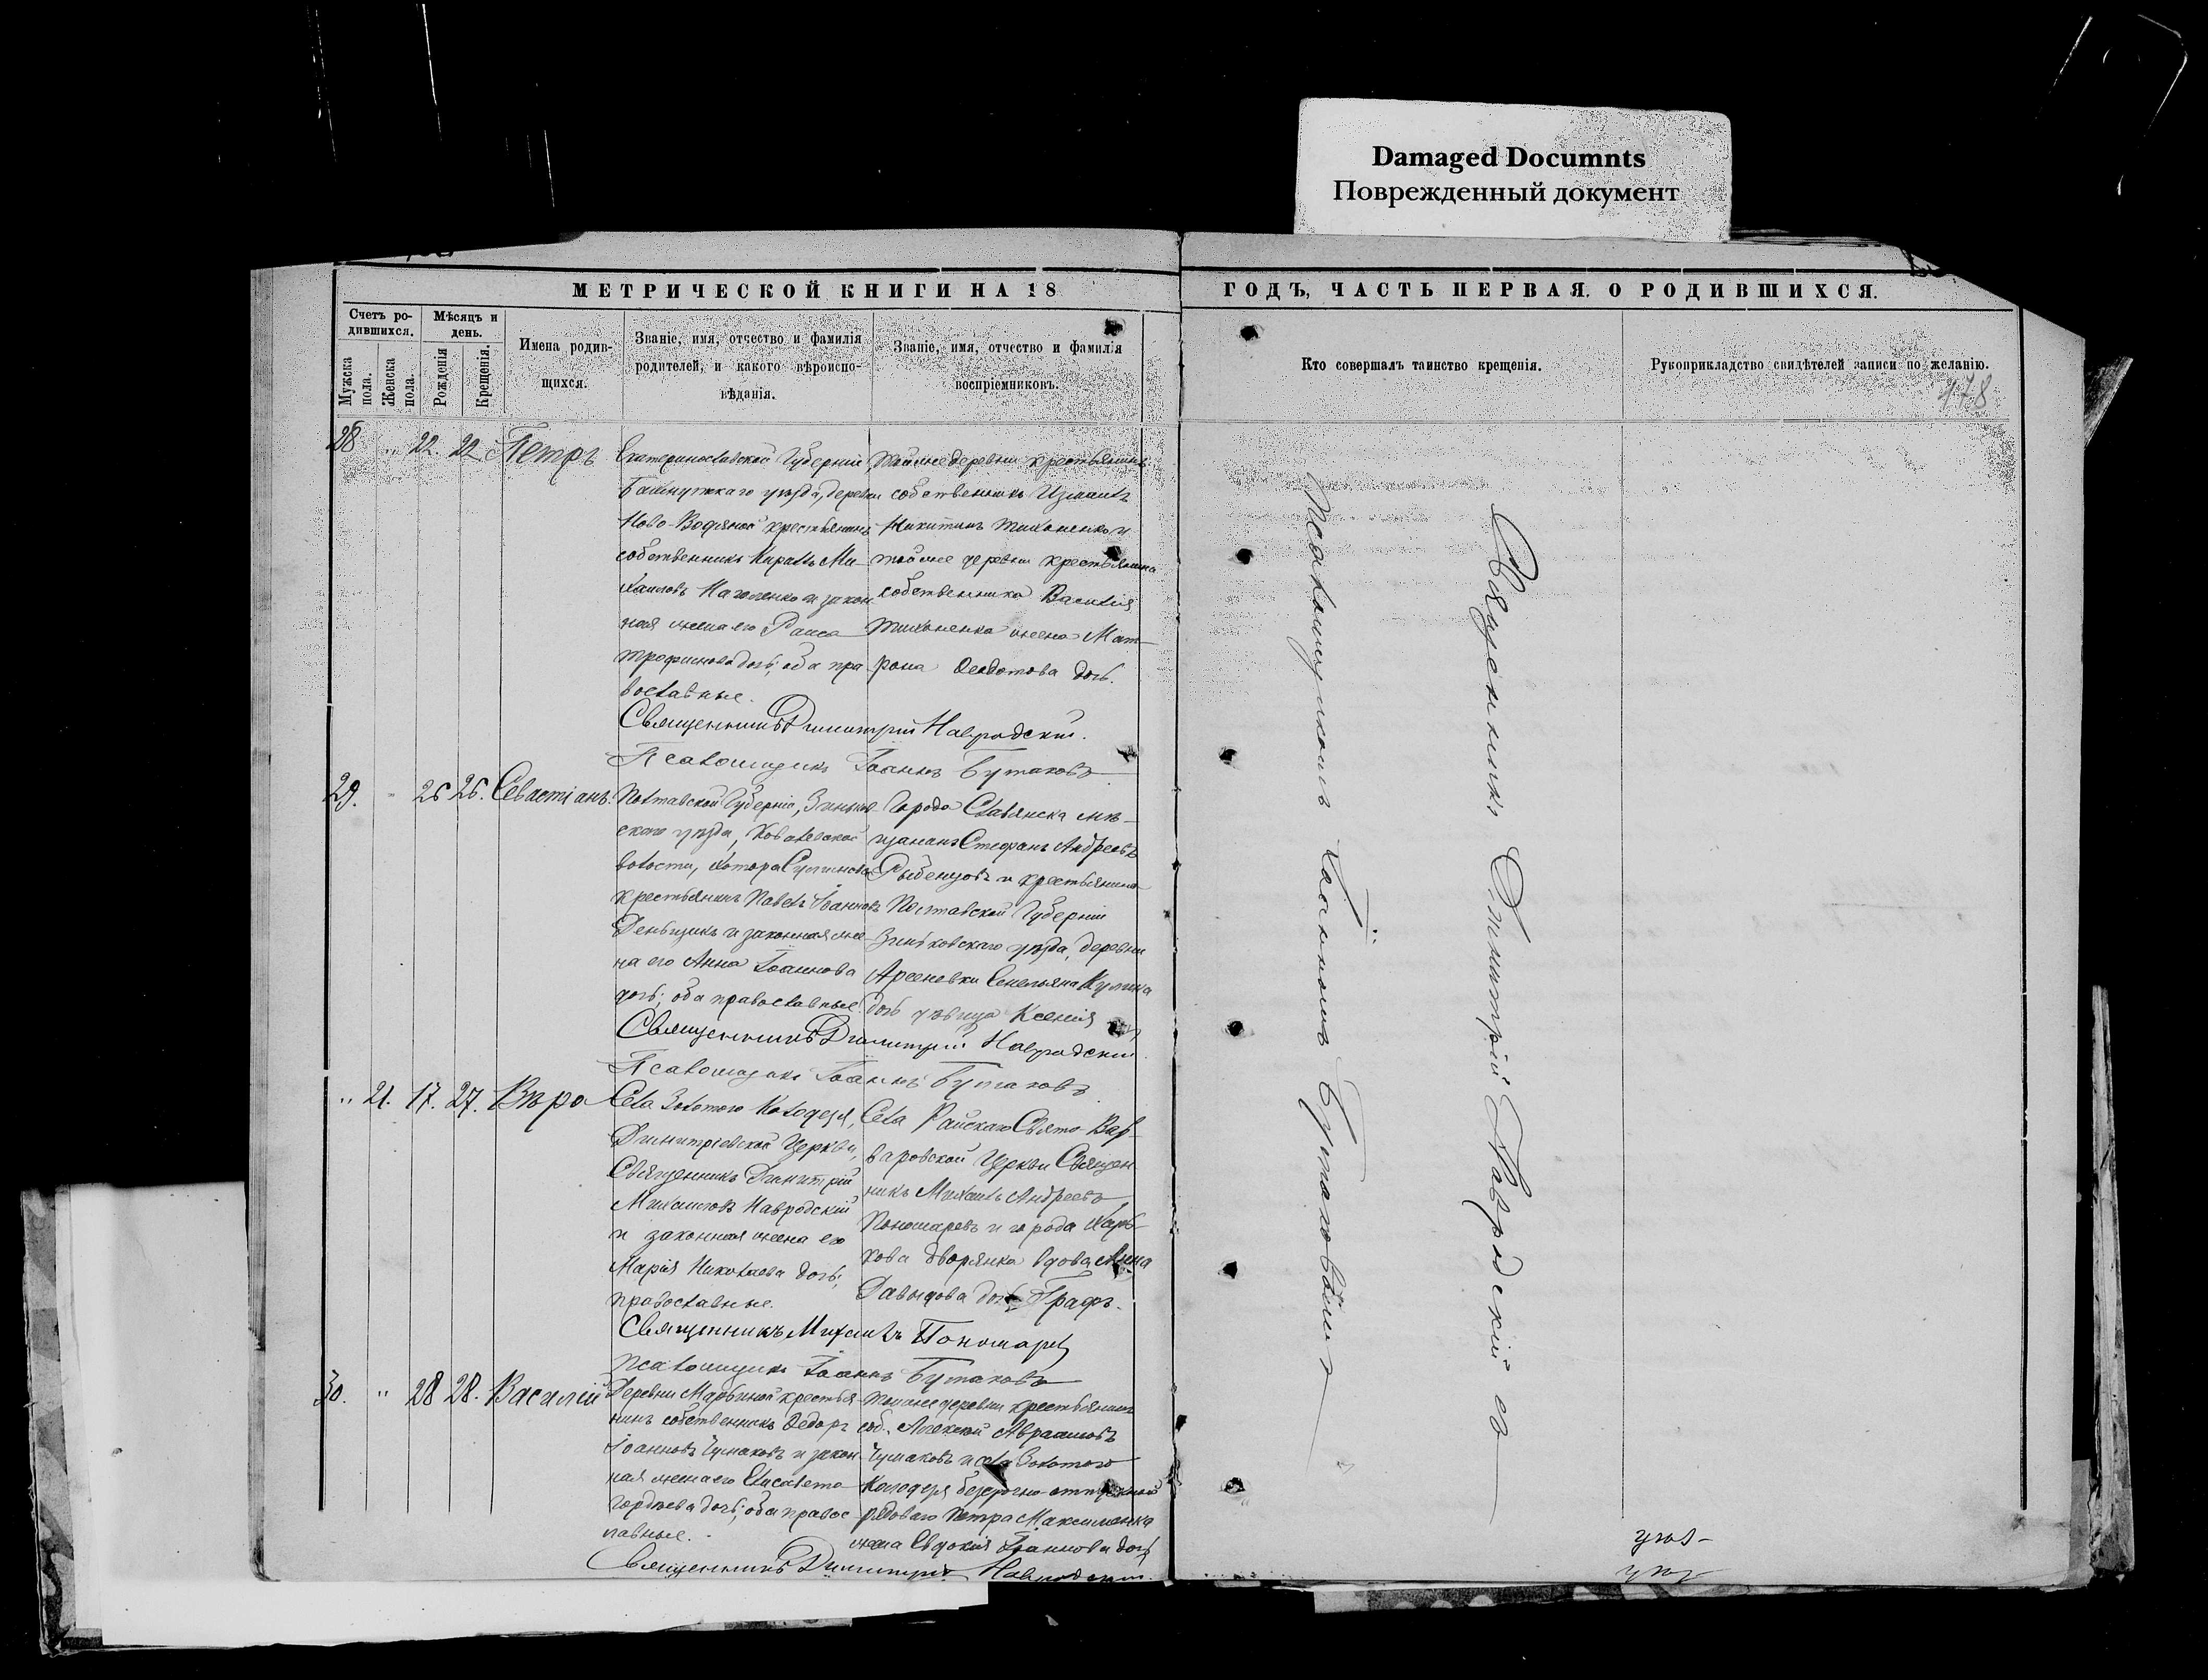 Damaged Documnts
Поврежденный документ
МЕТРИЧЕСКОЙ КНИГИ НА 18
ГОДЪ, ЧАСТЬ ПЕРВАЯ, О РОДИВШИХСЯ.
Счетъ ро-
дившихся.
Мужска
пола.
Женска
пола.
Мѣсяцъ и
день.
Рожденія
Крещенія.
Имена родив-
шихся.
Званіе, имя, отчество и фамилія
родителей, и какого вѣроиспо-
вѣданія.
Званіе, имя, отчество и фамилія
воспріемниковъ.
Кто совершалъ таинство крещенія.
Рукоприкладство свидѣтелей записи по желанію.
178
28 " 22. 22 Петръ
Екатеринославской Губерніи
Бахмутскаго уѣзда, деревни
Ново-Водяной крестьянинъ
собственникъ Кириллъ Ми-
хаиловъ Наголенко и закон
ная жена его Раиса
Митрофанова дочь; оба пра
вославные.
Той же деревни крестьянинъ
собственникъ Измаилъ
Никитинъ Тихоненко и
той же деревни крестьянина
собственника Василія
Тихоненка жена Мат-
рона Ѳеодотова дочь.
Священникъ Димитрій Навродскій.
Псаломщикъ Іоаннъ Бутаковъ
29. " 26 26. Севастіанъ.
Полтавской Губерніи, Зиньков
скаго уѣзда, Ковалевской
волости, хутора
крестьянинъ Павелъ Іоанновъ
Деньщикъ и законная же
на его Анна Іоаннова
дочь; оба православные.
Города Славянска мѣ-
щанинъ Стефанъ Андреевъ
Рыбенцовъ и крестьянина
Полтавской Губерніи
Зиньковскаго уѣзда, деревни
Арсеневки Емельяна
дочь дѣвица Ксенія
Священникъ Димитрій Навродскій
Псаломщикъ Іоаннъ Бутаковъ.
" 21. 17. 27. Вѣра
Села Золотого Колодезя,
Димитріевской Церкви,
Священникъ Димитрій
Михаиловъ Навродскій
и законная жена его
Марія Николаева дочь;
православные.
Села Райскаго Свято-Вар-
варовской Церкви Священ
никъ Михаилъ Андреевъ
Пономаревъ и города Харь-
кова дворянка вдова Анна
Давыдова дочь Графъ.
Священникъ Михаилъ Пономаревъ
Псаломщикъ Іоаннъ Бутаковъ
30. " 28 28. Василій
Деревни Марьиной крестья
нинъ собственникъ Ѳедоръ
Іоанновъ Чумаковъ и закон
ная жена его Елисавета
Гордѣева дочь; оба правос
лавные.
Той же деревни крестьянинъ
соб. Алексѣй Авраамовъ
Чумаковъ и села Золотого
Колодезя безсрочно-отпускной
рядоваго Петра Максименка
жена Евдокія Іоаннова дочь
Священникъ Димитрій Навродскій.
Священникъ Димитрій Навродскій съ
Псаломщикомъ Іоанномъ Бутаковымъ